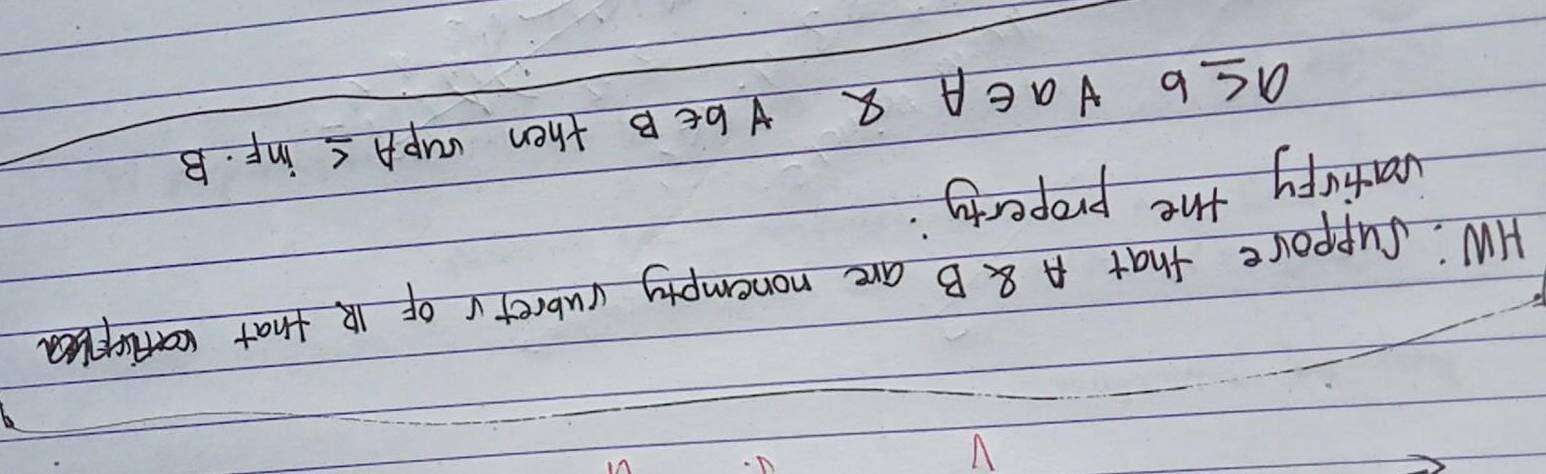 HW: Suppose that A & B are nonempty subsets of IR that
satisfy the property:
a ≤ b ∀ a ∈ A & ∀ b ∈ B then sup A ≤ inf. B